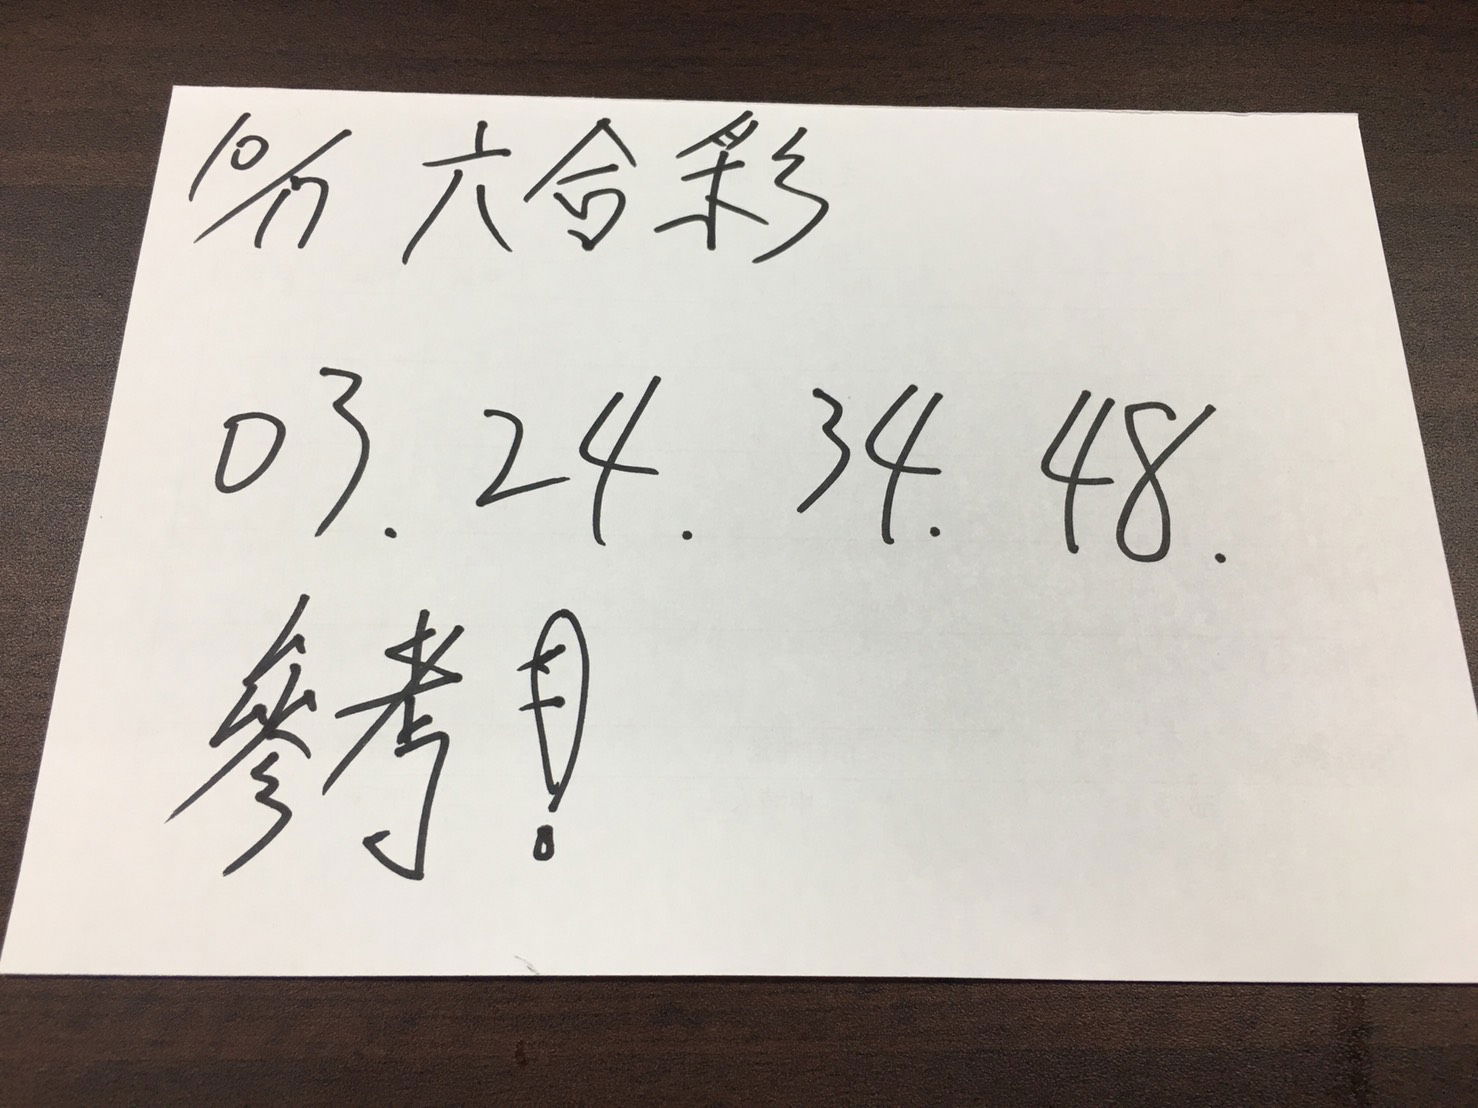 10/17 六合彩
03. 24. 34. 48.
參考!